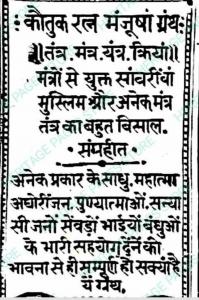 कौतुक रत्न मंजूषा ग्रंथः
॥तंत्र. मंत्र. यंत्र. क्रिया॥
मंत्रों से युक्त सांबरीधा
मुस्लिम और अनेक मंत्र
तंत्र का बहुत विसाल.
संग्रहीत.
अनेक प्रकार के साधु. महात्मा
अघोरीजन. पुण्यात्माओं. सन्या
सी जनों सेवड़ों भाईयों बंधुओं
के भारी सहयोग देने की
भावना से ही सम्पूर्ण हो सक्या है
ये ग्रंथ.